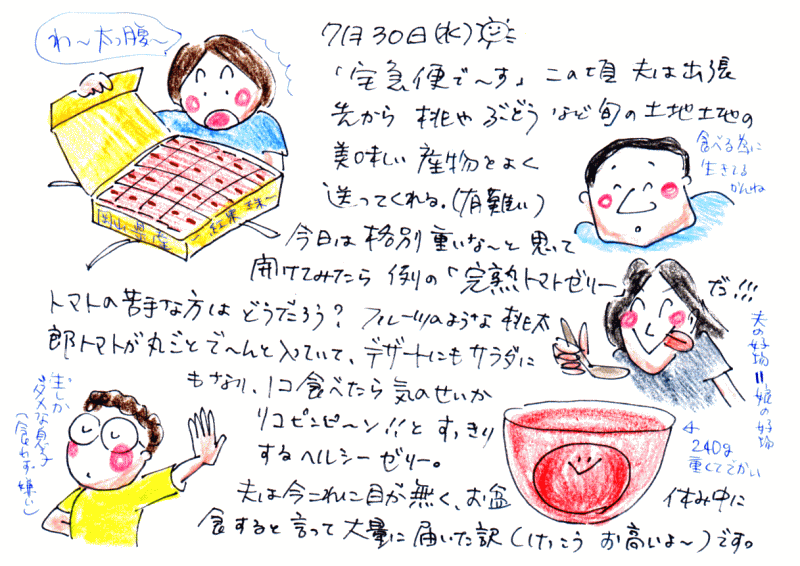 わ〜太っ腹〜
7月30日(水)
「宅急便で〜す」この頃 夫は出張
先から 桃や ぶどう など 旬の土地土地の
美味しい 産物をよく
送ってくれる。(有難い)
食べる為に
生きてる
かんね
今日は 格別 重いな〜と 思って
開けてみたら 例の「完熟トマトゼリー」だ!!!
トマトの苦手な方は どうだろう? フルーツのような 桃太
郎トマトが丸ごとで〜んと入っていて、デザートにもサラダに
もなり、1コ食べたら気のせいか
リコピンピ〜ン!!と すっきり
するヘルシーゼリー。
夫の好物=娘の好物
生しか
ダメな息子
(食わず嫌い)
240g
重くてでかい
夫は今これに目が無く、お盆休み中に
食すると言って大量に届いた訳(けっこう お高いよ〜)です。